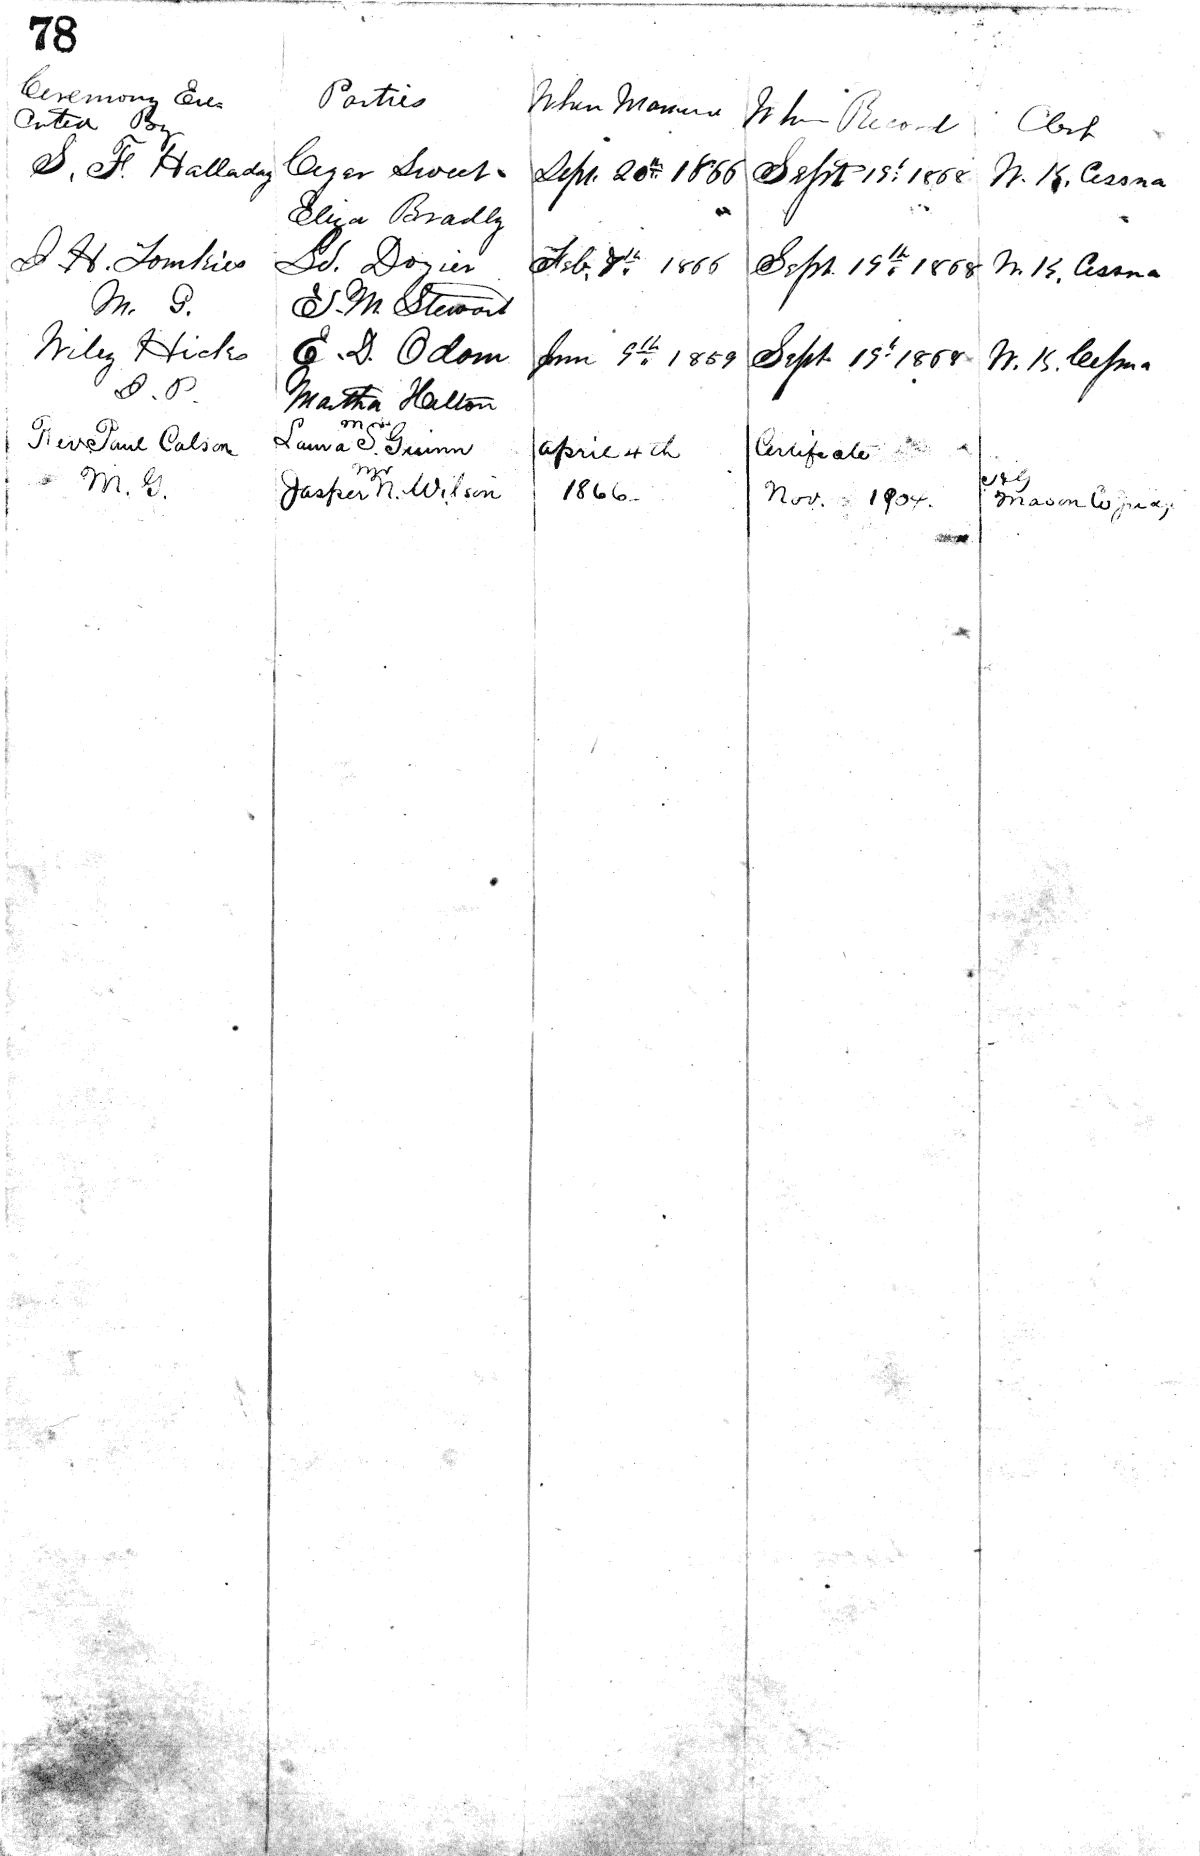 78
Ceremony Exe= Parties When Married When Record Clerk
cuted By
S. F. Halladay Ceger Sweet Sept. 20th 1866 Sept 19t 1868 W. K. Cessna
Eliza Bradly
J. H. Tomkies Ed. Dozier Feb. 8th 1866 Sept. 19th 1868 W. K. Cessna
M. G. E. M. Stewart
Wiley Hicks E. D. Odom 9th 1859 Sept 19t 1868 W. K. Cessna
J. P. Martha Helton
Rev Paul Calson Laura S. Guinn April 4th Certificate
M. G. Mr Jasper N. Wilson 1866 Nov. 1904. Mason Co